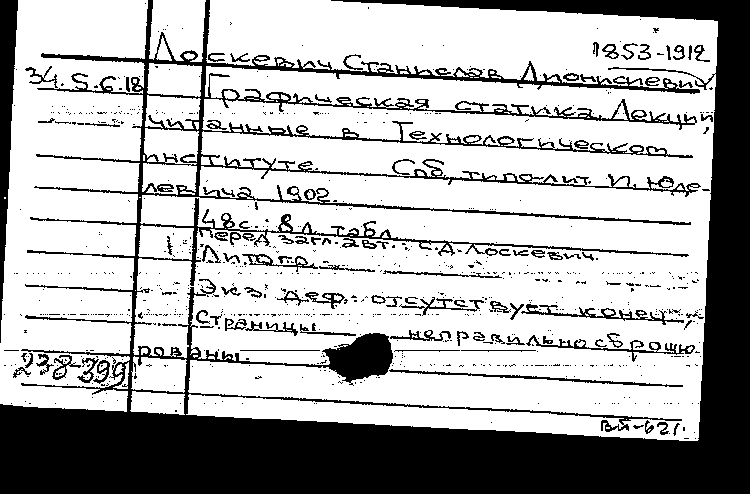 1853-1912
Лоскевич, Станислав Дионисиевич.
34.5.6.18
Графическая статика. Лекции,
читанные в Технологическом
институте. Спб, типо-лит. И. Юде-
левича, 1902.
48 с.; 8 л. табл.
Перед загл. авт.: С.Д. Лоскевич.
Литогр. -
Экз. деф.: отсутствует конец,
Страницы неправильно сброшю-
рованы.
238-399
ВЯ-621.